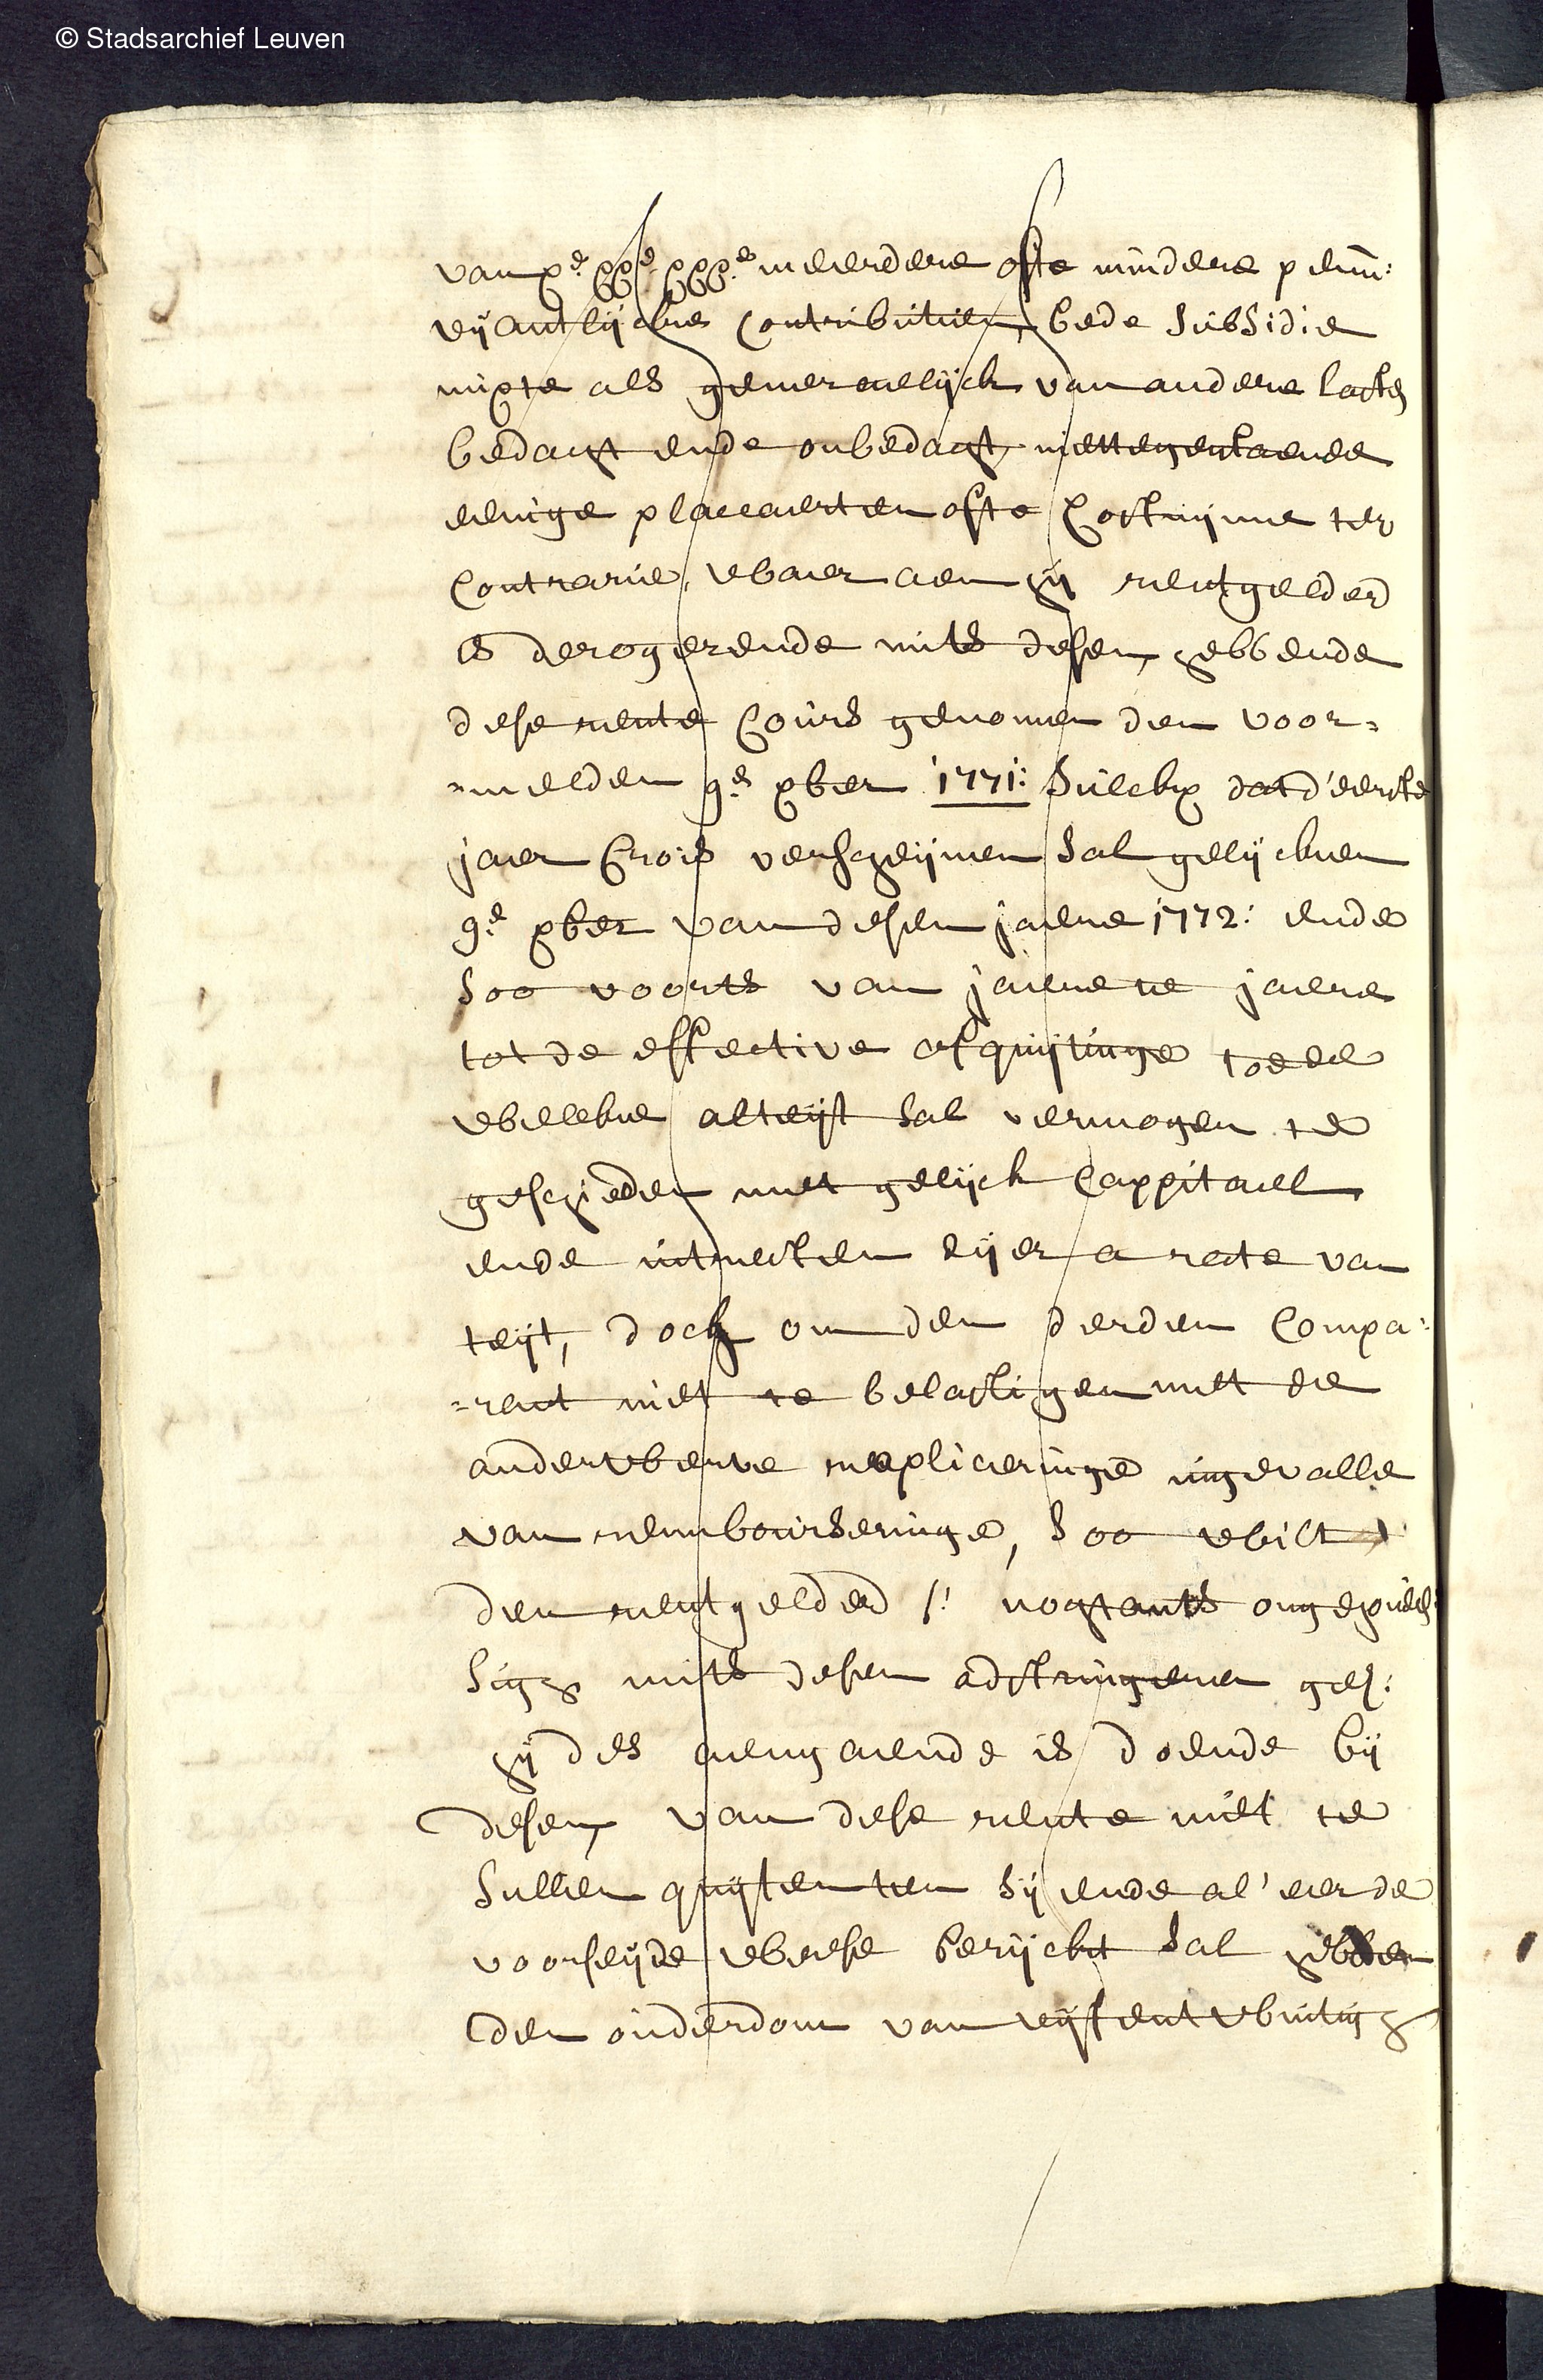 © Stadsarchief Leuven
van xe. xxe. xxxe. meerdere ofte mindere penn:
vijantlijcke Contributien, bede Subsidie
mixte als generaelijck van andere lasten
bedacht ende onbedacht, niettegenstaende
eenige placcaerten ofte Costuijme ter
Contrarie, waer aen hij rentgelder
is derogerende mits desen, hebbende
dese rente Cours genomen den voor=
=melden 9e xber 1771: Sulckx dat d'eerste
jaer Crois verscheijnen Sal gelijcken
9e xber van desen jaere 1772: ende
Soo voorts van jaere te jaere
tot de effective afquijtinge toe de
welcke alteijt Sal vermogen te
geschieden met gelijck Cappitael
ende intresten eijer a rate van
teijt, doch om den derden Compa=
=rant niet te belastigen met de
anderwerve repliceringe ingevalle
van rembourseringe, Soo wilt
den rentgelder /: nochtants ongepreju:
Sigh mits desen adstringeren gel:
hij des aengaende is doende bij
desen, van dese rente niet te
Sullen quijten ten Sij ende al' eer de
voorseijde weese berijckt Sal hebben
den ouderdom van vijfentwintigh